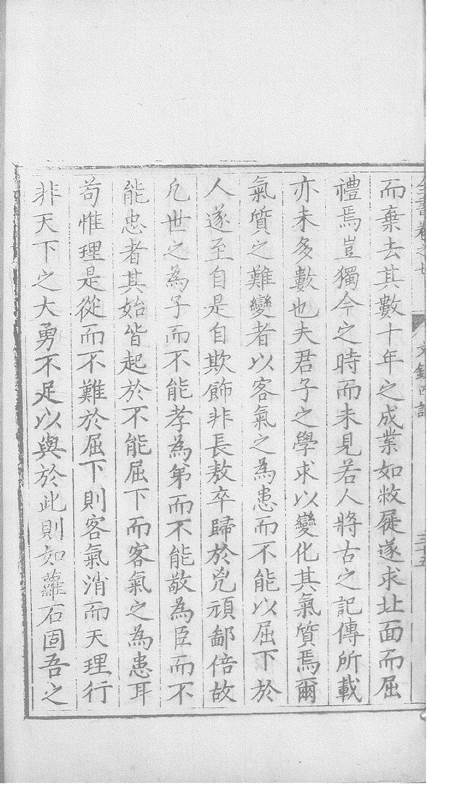 全書卷之七　文錄四記　三十五
而棄去其數十年之成業如敝屣遂求北面而屈
禮焉豈獨今之時而未見若人將古之記傳所載
亦未多數也夫君子之學求以變化其氣質焉爾
氣質之難變者以客氣之為患而不能以屈下於
人遂至自是自欺飾非長敖卒歸於兇頑鄙倍故
凡世之為子而不能孝為弟而不能敬為臣而不
能忠者其始皆起於不能屈下而客氣之為患耳
苟惟理是從而不難於屈下則客氣消而天理行
非天下之大勇不足以與於此則如蘿石固吾之